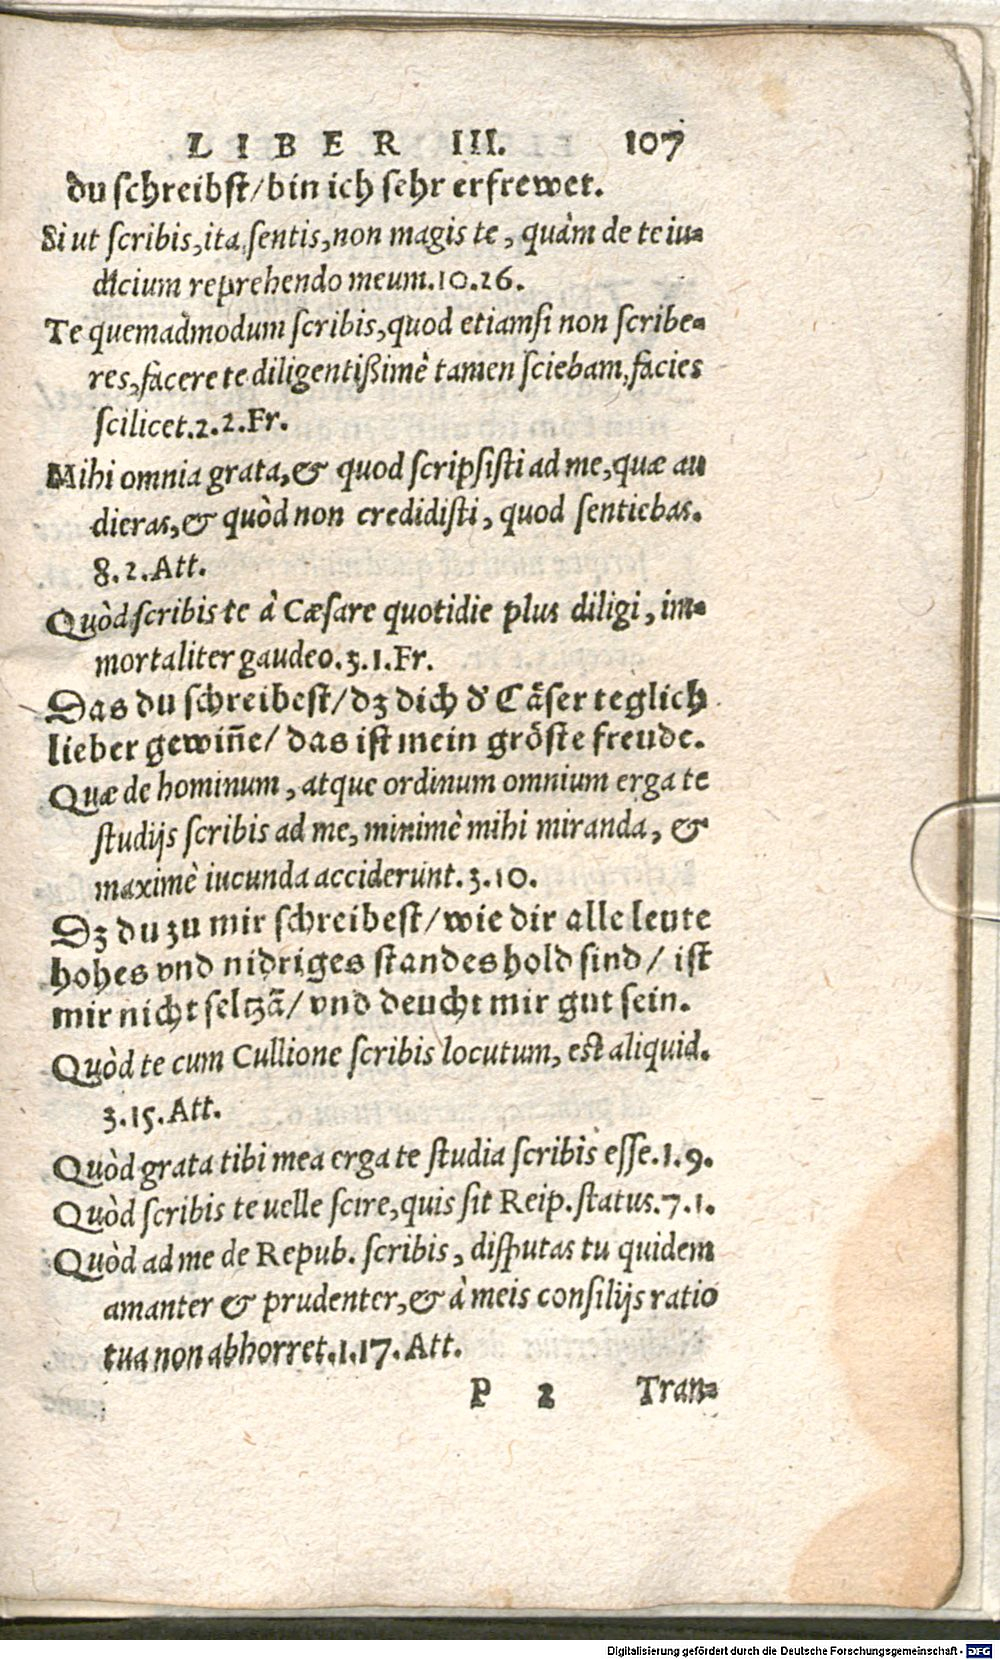 LIBER III. 107
du schreibst/bin ich sehr erfrewet.
Si ut scribis, ita sentis, non magis te, quàm de te iu-
dicium reprehendo meum. 10. 26.
Te quemadmodum scribis, quod etiamsi non scribe-
res, facere te diligentißimè tamen sciebam, facies
scilicet. 2. 2. Fr.
Mihi omnia grata, & quod scripsisti ad me, quæ au
dieras, & quòd non credidisti, quod sentiebas.
8. 2. Att.
Quòd scribis te à Cæsare quotidie plus diligi, im-
mortaliter gaudeo. 3. 1. Fr.
Das du schreibest/dz dich d' Cäser teglich
lieber gewiñe/ das ist mein gröste freude.
Quæ de hominum, atque ordinum omnium erga te
studijs scribis ad me, minimè mihi miranda, &
maximè iucunda acciderunt. 3. 10.
Dz du zu mir schreibest/wie dir alle leute
hohes vnd nidriges standes hold sind/ ist
mir nicht seltzã/ vnd deucht mir gut sein.
Quòd te cum Cullione scribis locutum, est aliquid.
3. 15. Att.
Quòd grata tibi mea erga te studia scribis esse. 1. 9.
Quòd scribis te uelle scire, quis sit Reip. status. 7. 1.
Quòd ad me de Repub. scribis, disputas tu quidem
amanter & prudenter, & à meis consilijs ratio
tua non abhorret. 1. 17. Att.
P 2 Tran-
Digitalisierung gefördert durch die Deutsche Forschungsgemeinschaft - DFG